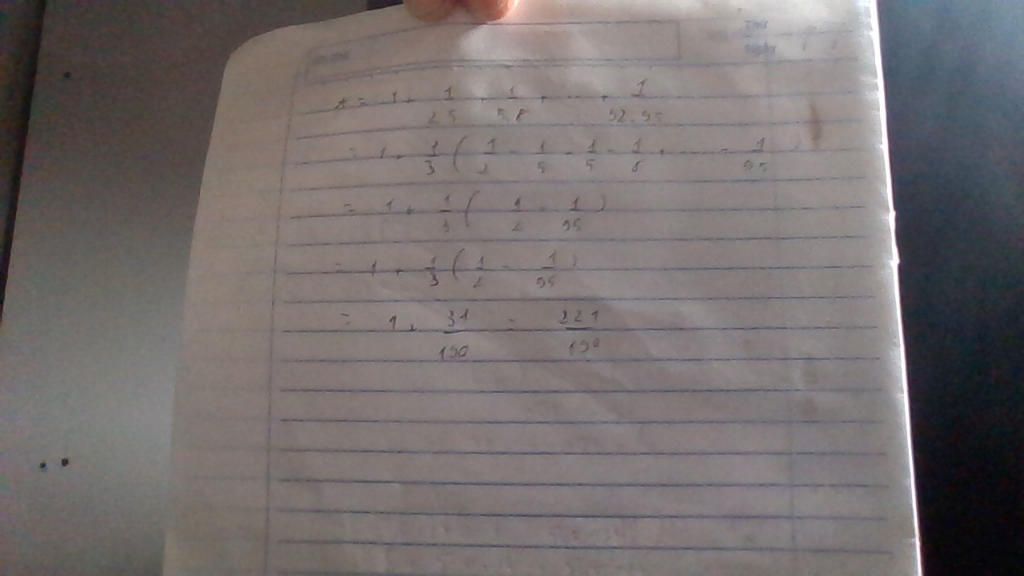 A = 1 + 1/2.5 + 1/5.8 + .... + 1/92.95
= 1 + 1/3 ( 1/2 - 1/5 - 1/5 - 1/8 + ..... - 1/95 )
= 1 + 1/3 ( 1/2 - 1/95 )
= 1 + 1/3 ( 1/2 - 1/95 )
= 1 + 31/190 = 221/190